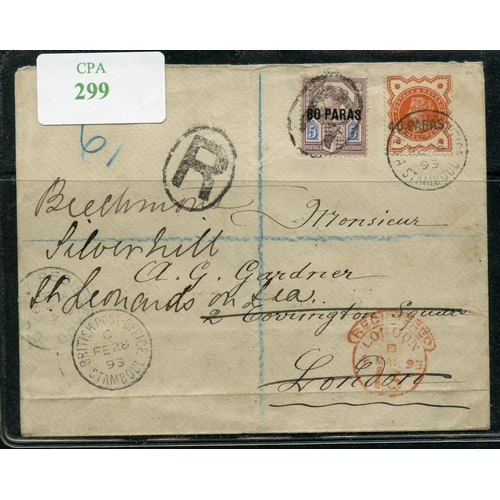 CPA
299
61
80 PARAS
5 5
POSTAGE REVENUE
40 PARAS
R
Beechmon
Monsieur
Silverhill
A. G. Gardner
St Leonards on Sea
2 Covington Square
London
BRITISH POST OFFICE
C
FE 28
93
STAMBOUL
93
STAMBOUL
REGISTERED
LONDON
93